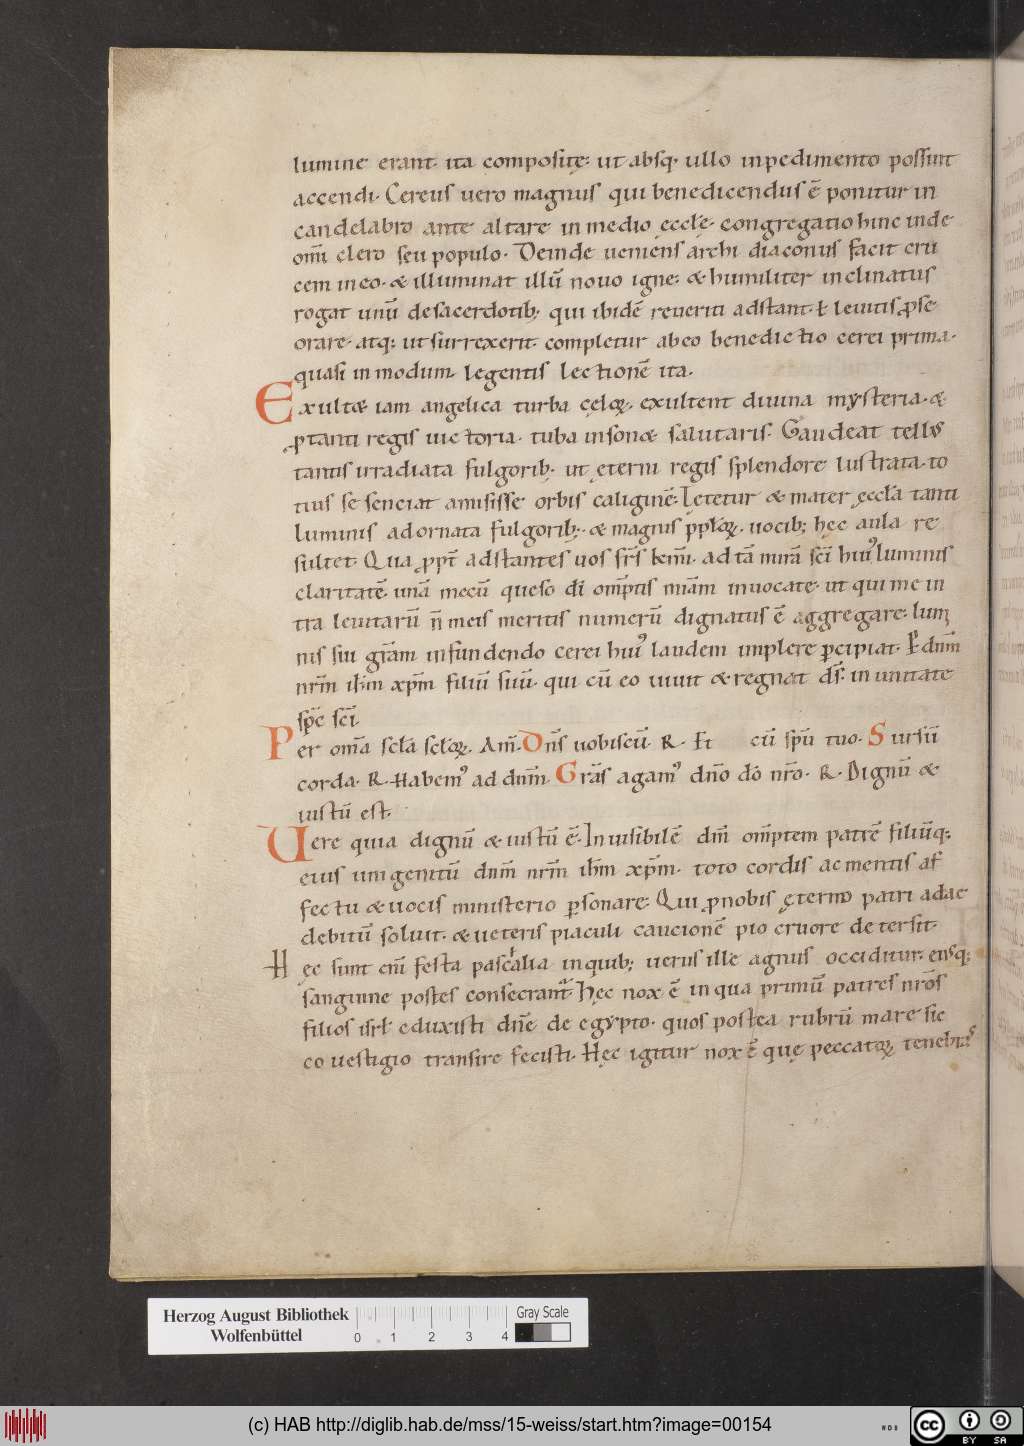 lumine erant· ita cōposite̜: ut absq; ullo inpedimento possunt
accendi· Cereus uero magnus qui benedicendus ē ponitur in
candelabro ante altare in medio e̜ccle̜· congregatio hinc inde
om̄i clero seu populo· Deinde ueniens archi diaconus facit cru
cem in eo· & illuminat illū nouo igne: & humiliter inclinatus
rogat unū de sacerdotib; qui ibidē reueriti adstant· ł leuitis ꝓ se
orare· atq; ut surrexerit· completur ab eo benedictio cerei prima·
quasi in modum legentis lectionē ita·
Exult& iam angelica turba ce̜loꝝ· exultent diuina mysteria· &
ꝓ tanti regis uictoria· tuba inson& salutaris· Gaudeat tell᷒
tantis irradiata fulgorib; ut e̜terni regis splendore lustrata· to
tius se senciat amisisse orbis caliginē· Le̜tetur & mater e̜cclā tanti
luminis adornata fulgorib;· & magnis ppłoꝝ· uocib; he̜c aula re
sultet· Qua ꝓpt̄ adstantes uos fr̄s km̄i· ad tā mirā sc̄i hui᷒ luminis
claritatē· unā mecū queso dī om̄ptis miām inuocate· ut qui me in
tra leuitarū n̄ meis meritis numerū dignatus ē aggregare· lumi
nis sui gr̄am infundendo cerei hui᷒ laudem implere p̄cipiat· P̄ dnm̄
nrm̄ ihm̄ xpm̄ filiū suū· qui cū eo uiuit & regnat ds̄· in unitate
spc̄ sc̄i·
Per om̄a scłā scłoꝝ. Am̄· Dn̄s uobiscū· R· Et cū spū tuo· Sursū
corda· R· Habem᷒ ad dnm̄· Grās agam᷒ dn̄o dō nr̄o· R· Dignū &
iustū est·
Uere quia dignū & iustū ē· Inuisibilē dm̄ om̄ptem patrē filiūq;
eius unigenitū dnm̄ nrm̄ ihm̄ xpm̄· toto cordis ac mentis af
fectu & uocis ministerio ꝑsonare· Qui ꝓ nobis e̜terno patri adae
debitū soluit· & ueteris piaculi caucionē pio cruore detersit·
He̜c sunt eni̅ festa pascalia in quib; uerus ille agnus occiditur· eiusq;
sanguine postes consecrant᷑· He̜c nox ē in qua primū patres nrōs
filios isrł eduxisti dn̄e de egypto· quos postea rubrū mare sic
co uestigio transire fecisti· He̜c igitur nox ē que̜ peccatoꝝ tenebras
Herzog August Bibliothek
Wolfenbüttel
0 1 2 3 4
Gray Scale
(c) HAB http://diglib.hab.de/mss/15-weiss/start.htm?image=00154
cc BY SA